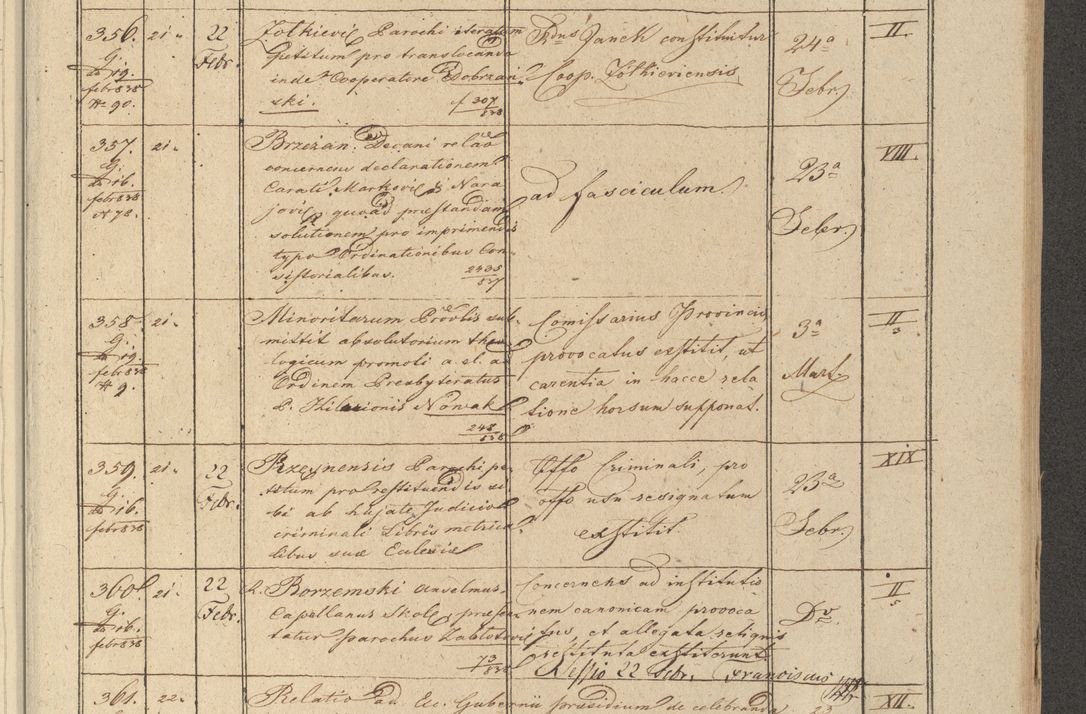 356. 21. 22 Febr.
G.
dto 19.
febr 838
N 90.
Zolkievi Parochi iteratum
petitum pro translocando
inde Cooperatore Dobrzań
ski. f 307/838
Rdus Janek constituitur
Coop. Zolkieviensis
24a
Febr.
II.
357. 21.
G.
dto 16.
febr 838
N 78.
Brzezan. Decani relao
concernens declarationem
Curati Markovi & Nara
jovi, quoad præstandam
solutionem pro imprimendis
typo Ordinationibus Con
sistorialibus. 2435/837
ad fasciculum
23a
Febr.
VIII.
358. 21.
G.
dto 19.
febr 838
N 9.
Minoritarum Provlis sub
mittit absolutorium theo
logicum promoti a. el. ad
Ordinem Presbyteratus
P. Hilarionis Nowak
248/838
Comissarius Provincis
provocatus exstitit, ut
carentia in hacce rela
tione horsum supponat.
3a
Mart.
II
3
359. 21. 22 Febr.
G.
dto 16.
febr 838
Parochi pe
titum pro restituendis si
bi ab hujate Judicio
criminali Libris metrica
libus suæ Eclesiæ
Offo Criminali, pro
offo usu resignatum
exstitit.
23a
Febr.
XIX
360. 21. 22 Febr.
G.
dto 16.
febr 838
R. Borzemski Anselmus,
Capellanus Skole, præsen
tatur parochus Zablotovi
73/838
Concernens ad institutio
nem canonicam provoca
tus, et allegata resignis
restituta exstiterunt
Sessio 22 Febr. Franciscus
Do
II
5
361. 22.
Relatio ad Ec. Gubernii præsidium de celebranda
23
XII.